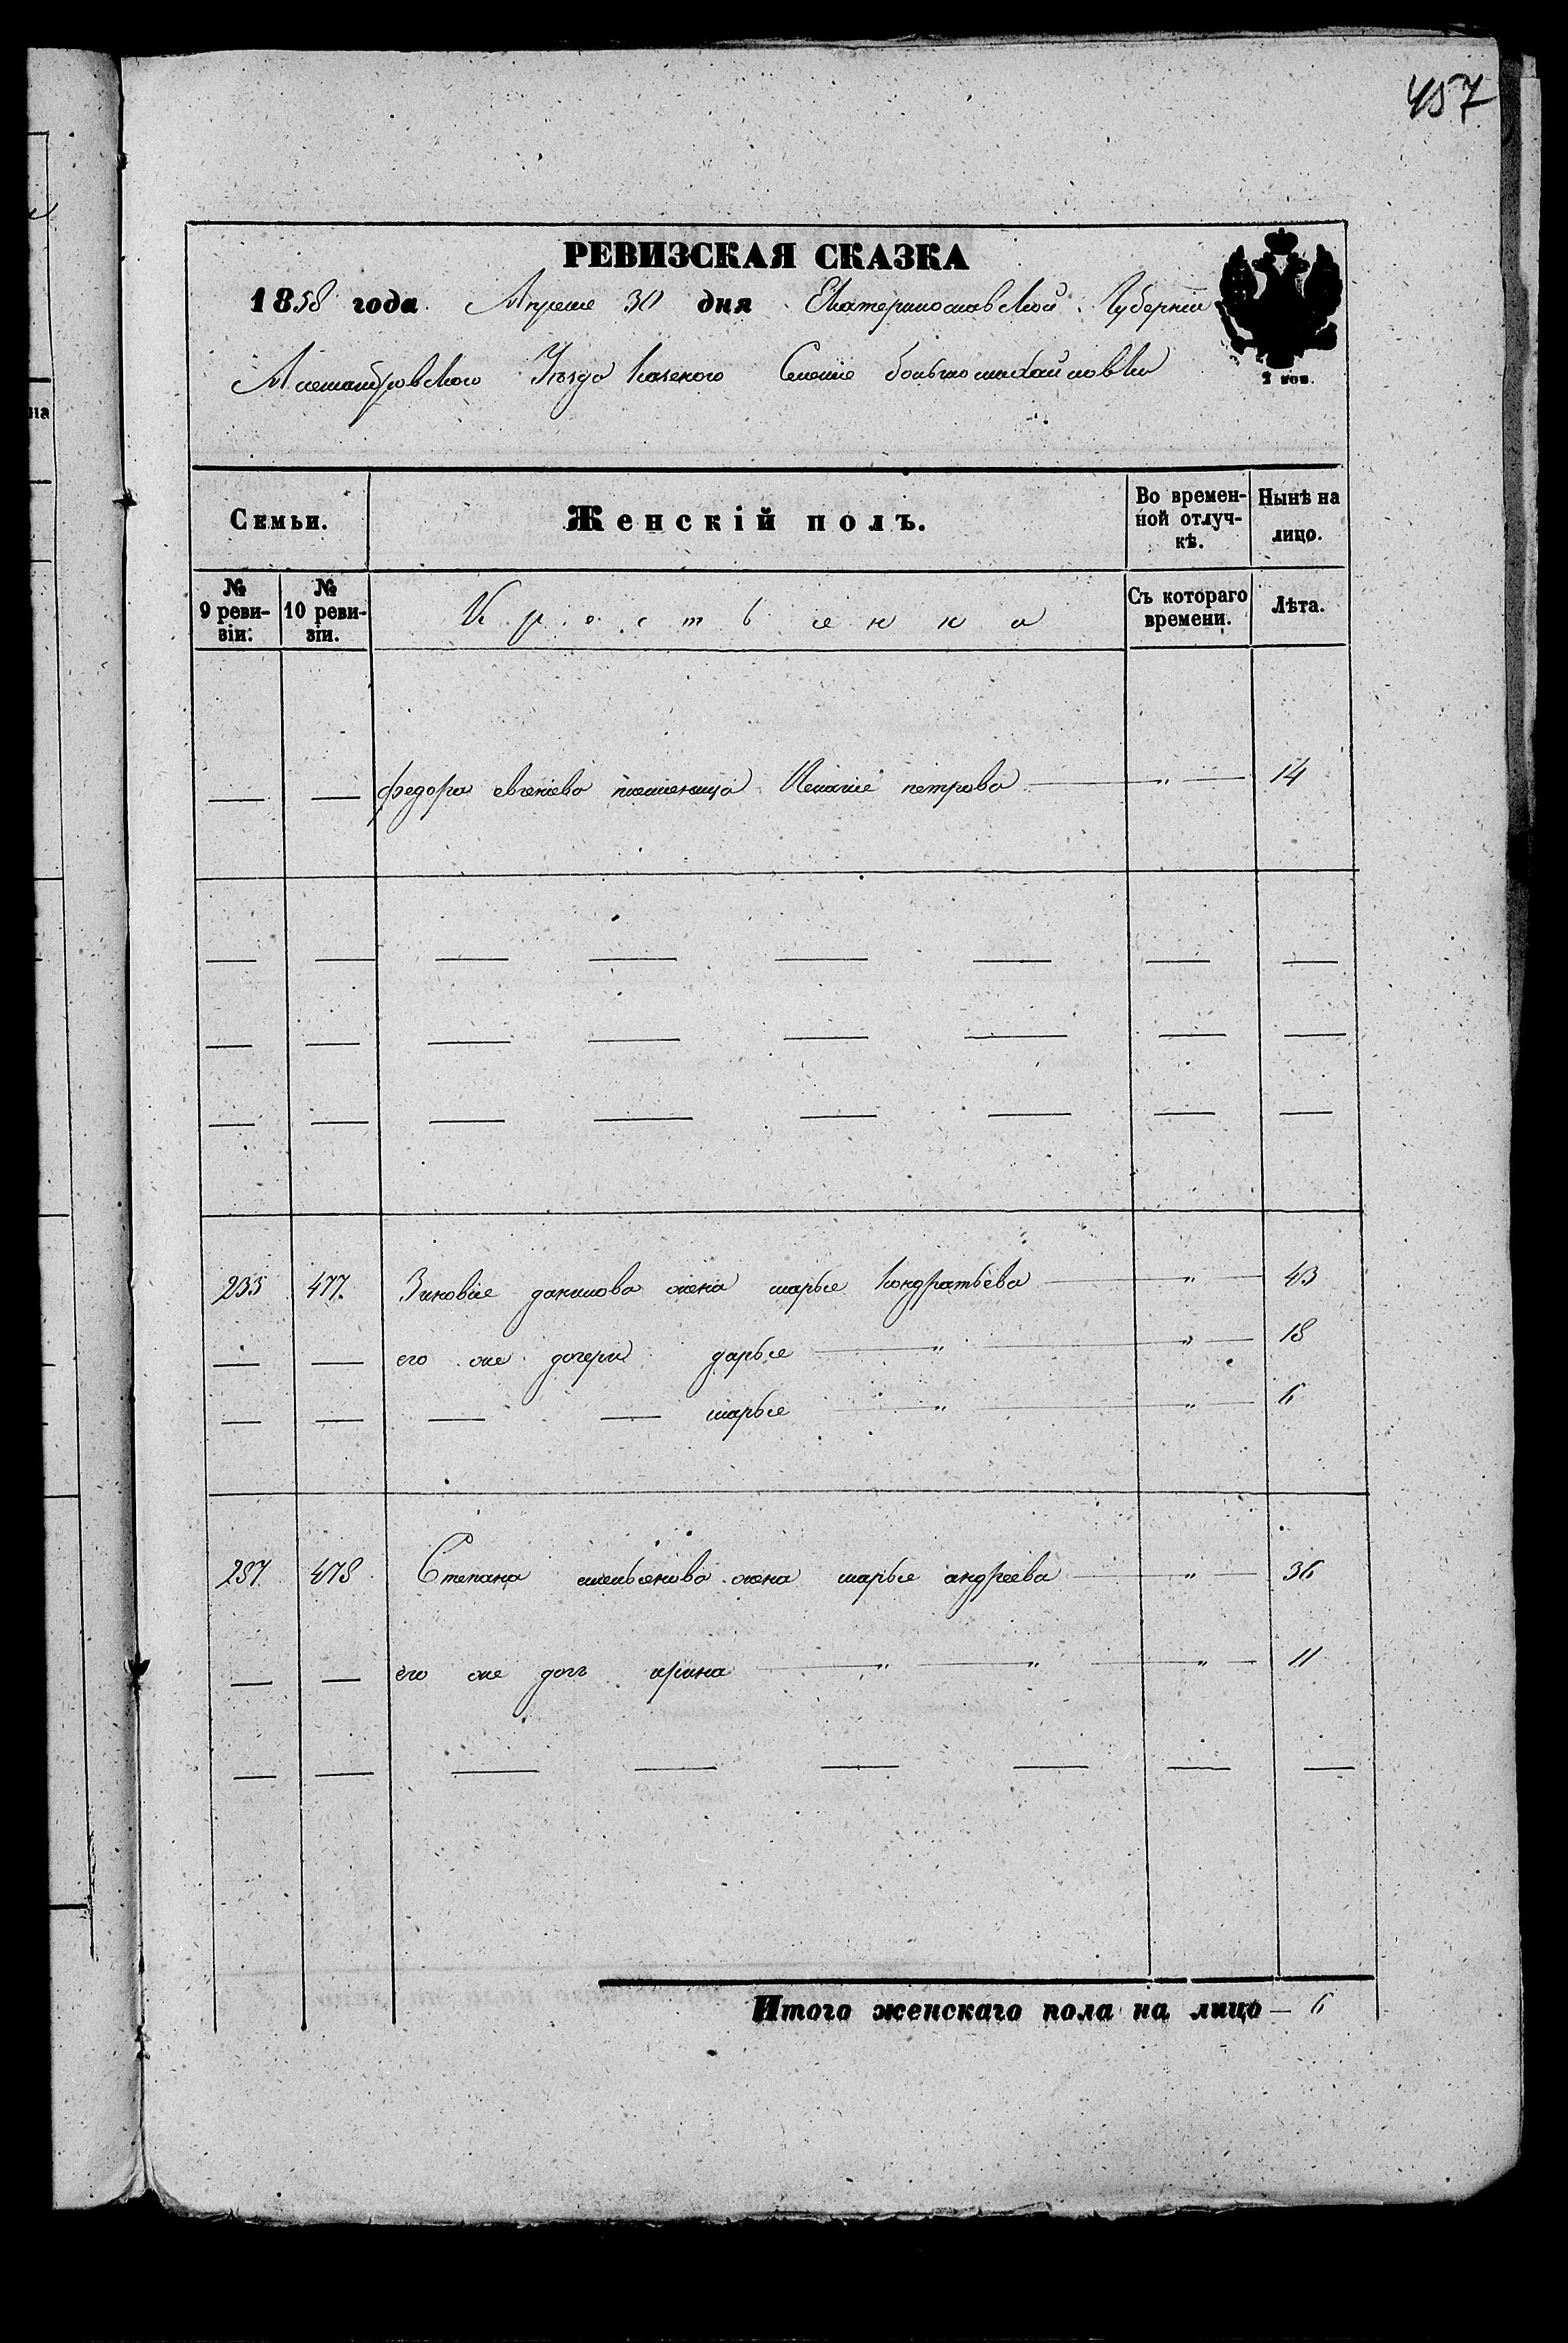 457
РЕВИЗСКАЯ СКАЗКА
1858 года Апреля 30 дня Екатеринославской Губернии
Александровского Уезда Казеного Селения большомихайловки
2 коп.
на
Семьи. Женскій полъ. Во времен-ной отлуч-кѣ. Нынѣ на лицо.
№ 9 реви-зіи. № 10 реви-зіи. Крестьянка Съ котораго времени. Лѣта.
— — федора евгенева племеница петрова — " — 14
— — — — — — — —
— — — — — — — —
— — — — — — — —
235 477 Зиновiя данилова жена марья Кондратьева — " — 43
— — его же дочери дарья — " — " — 18
— — — — марья — " — " — 6
237 478 Степана жена марья андреева — " — 36
— — его же дочь ирина — " — " — " — 11
— — — — — — — —
Итого женскаго пола на лицо — 6